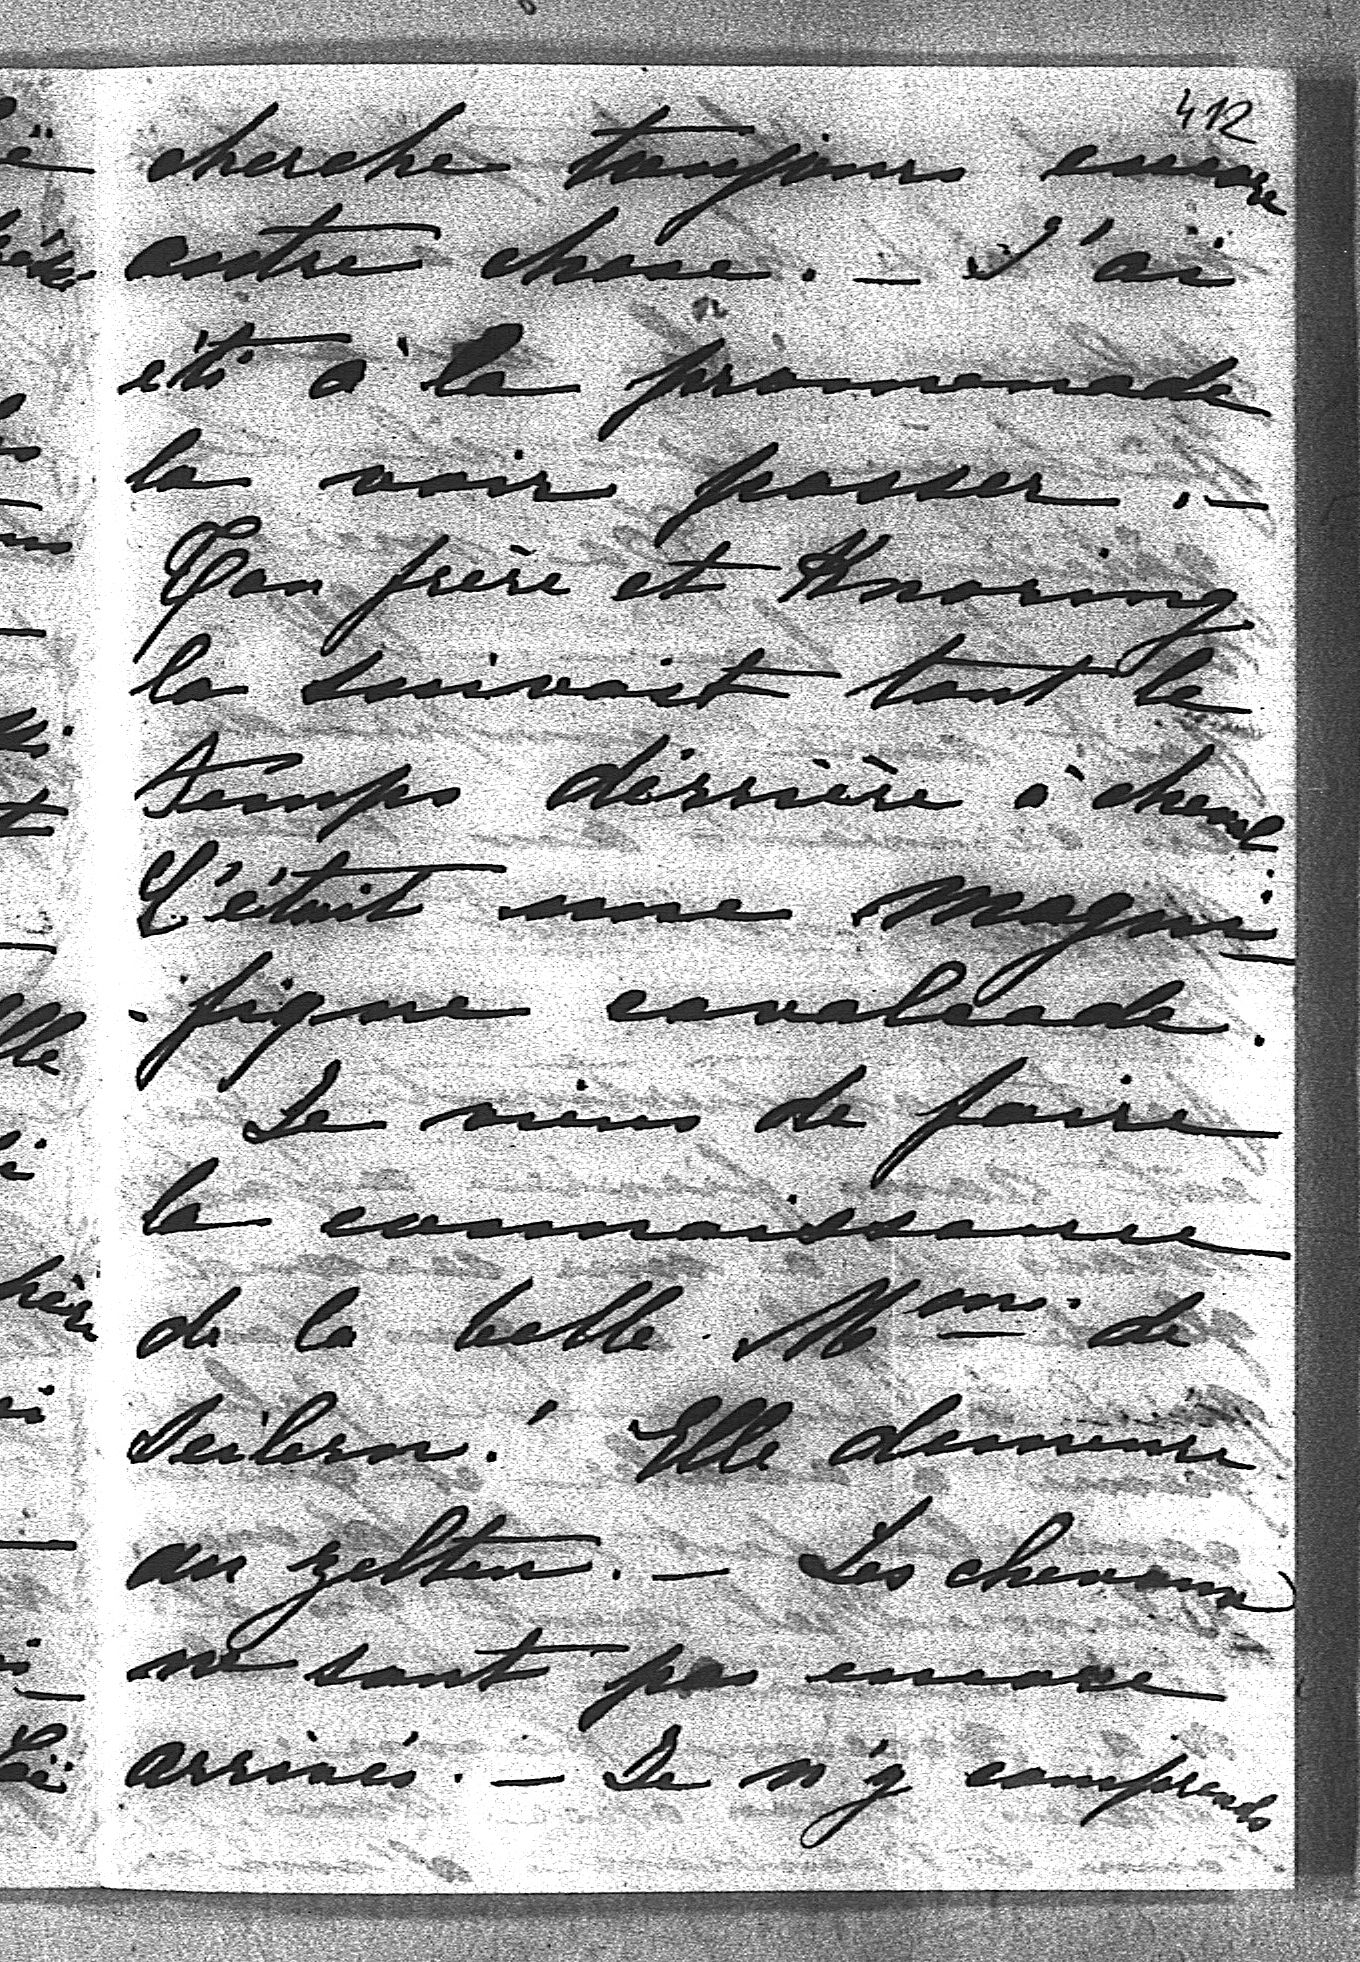 412
cherche toujours encore
autre chose. — J'ai
été à la promenade
la voir passer. —
Ton frère et Knoring
la suivait tout le
temps dérrière à cheval
C'était une magni-
-fique cavalcade.
Je viens de faire
la connaissance
de la belle Mme. de
Seilern. Elle demeure
au zelten. — Les chevaux
ne sont pas encore
arrivés. — Je n'y comprends